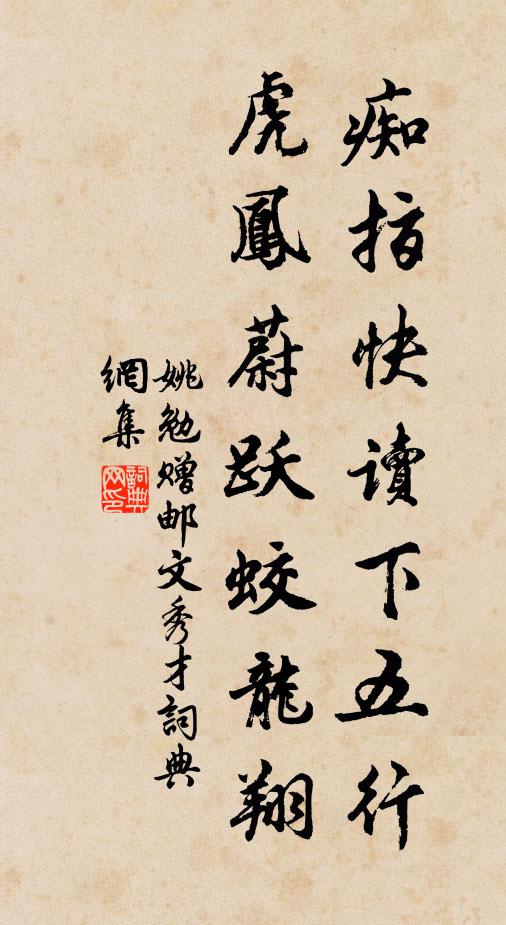 痴指快讀下五行
虎鳳蔚跃蛟龍翔
姚勉赠邮文秀才詞典
網集
詞典網印